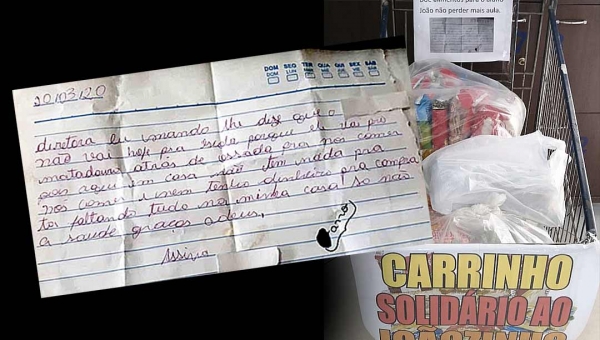 João não perder mais aula.
DOM SEG TER QUA QUI SEX SÁB
DOM LUN MAR MIÉ JUE VIE SÁB
20/03/20
diretora eu mando lhe dize que o
não vai hoje pra porque ele vai pro
matadouro atrás de ossada pra nós comer
pois aqui em casa não tem nada pra
nós comer i nem tenho dinheiro pra compra
tar faltando tudo na minha casa so não
a saude graças a deus,
Assina
CARRINHO
SOLIDÁRIO AO
JOÃOZINHO